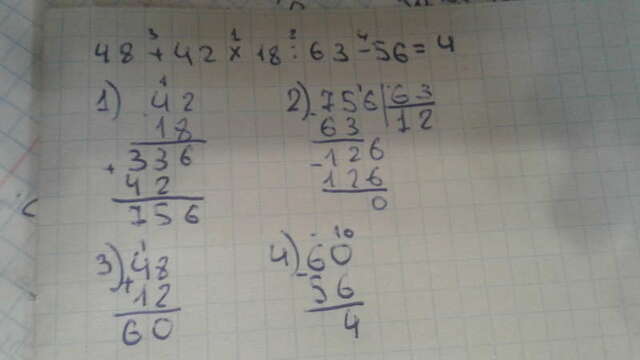 48 + 42 × 18 : 63 - 56 = 4
3 1 2 4
1) 42
18
336
+ 42
756
2) 756 | 63
- 63 | 12
126
- 126
0
3) 48
+ 12
60
4) 60
- 56
4